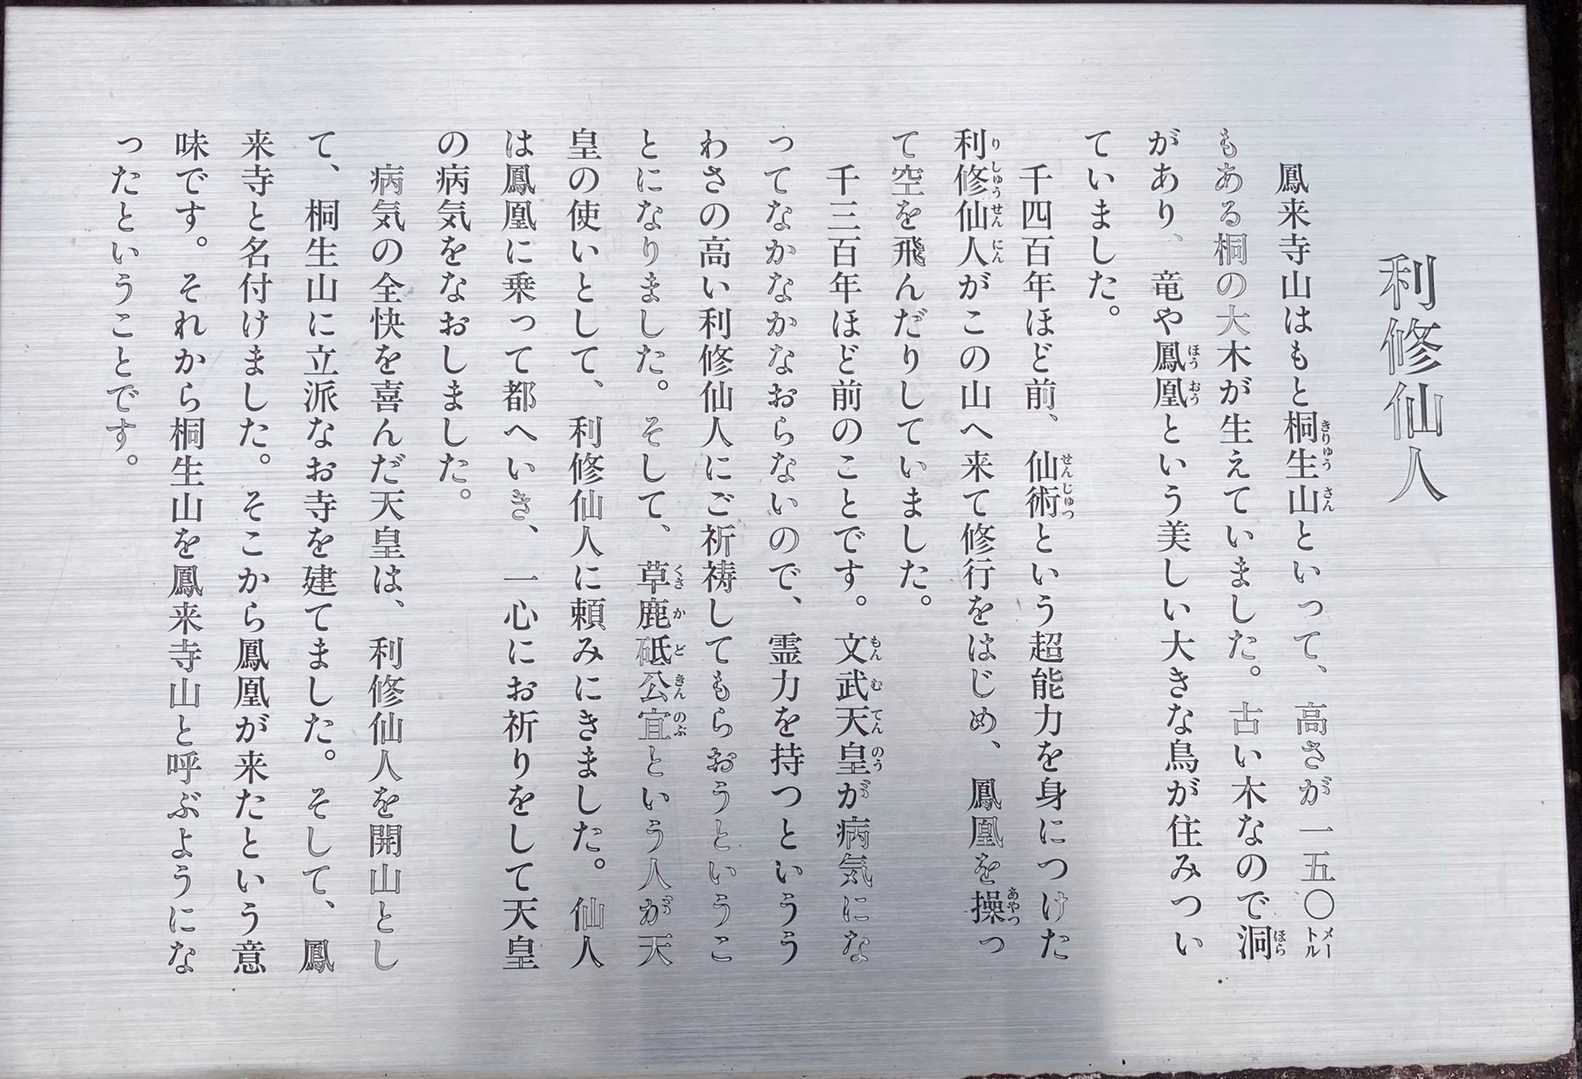 利修仙人
鳳来寺山はもと桐生山といって、高さが一五〇メートル
もある桐の大木が生えていました。古い木なので洞
があり、竜や鳳凰という美しい大きな鳥が住みつい
ていました。
千四百年ほど前、仙術という超能力を身につけた
利修仙人がこの山へ来て修行をはじめ、鳳凰を操っ
て空を飛んだりしていました。
千三百年ほど前のことです。文武天皇が病気にな
ってなかなかなおらないので、霊力を持つというう
わさの高い利修仙人にご祈祷してもらおうというこ
とになりました。そして、草鹿砥公宣という人が天
皇の使いとして、利修仙人に頼みにきました。仙人
は鳳凰に乗って都へいき、一心にお祈りをして天皇
の病気をなおしました。
病気の全快を喜んだ天皇は、利修仙人を開山とし
て、桐生山に立派なお寺を建てました。そして、鳳
来寺と名付けました。そこから鳳凰が来たという意
味です。それから桐生山を鳳来寺山と呼ぶようにな
ったということです。